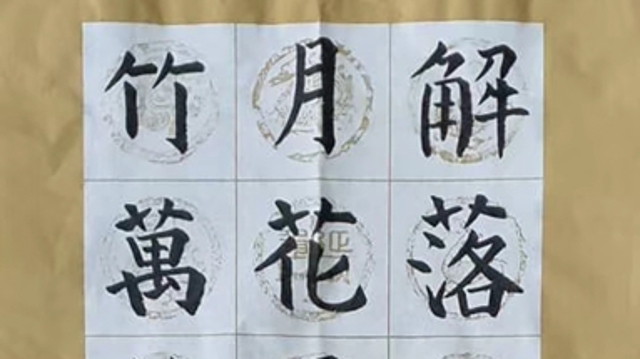 解落
月花
竹萬